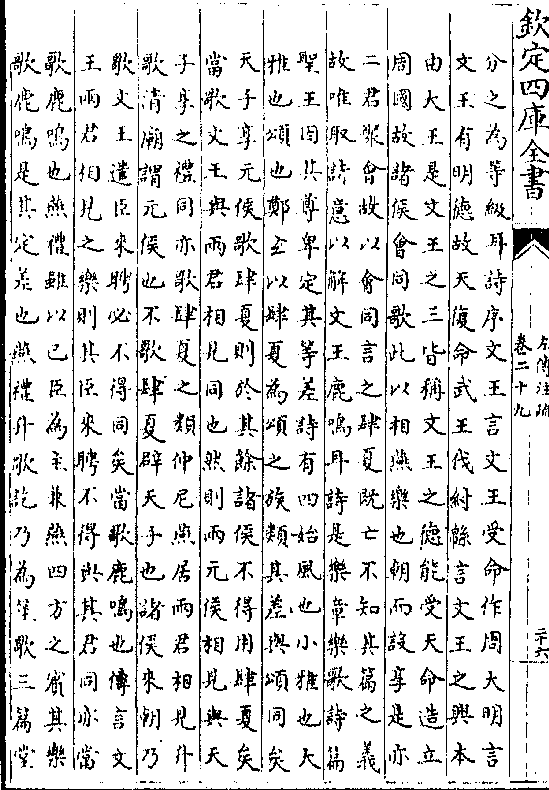 欽定四庫全書
左傳注疏
卷二十九
二十六
分之為等級耳詩序文王言文王受命作周大明言
文王有明德故天復命武王伐紂緜言文王之興本
由大王是文王之三皆稱文王之德能受天命造立
周國故諸侯會同歌此以相燕樂也朝而設享是亦
二君聚會故以會同言之肆夏既亡不知其篇之義
故唯取詩意以解文王鹿鳴耳詩是樂章樂歌詩篇
聖王因其尊卑定其等差詩有四始風也小雅也大
雅也頌也鄭玄以肆夏為頌之族類其差與頌同矣
天子享元侯歌肆夏則於其餘諸侯不得用肆夏矣
當歌文王與兩君相見同也然則兩元侯相見與天
子享之禮同亦歌肆夏之類仲尼燕居兩君相見升
歌清廟謂元侯也不歌肆夏辟天子也諸侯來朝乃
歌文王遣臣來聘必不得同矣當歌鹿鳴也傳言文
王兩君相見之樂則其臣來聘不得與其君同亦當
歌鹿鳴也燕禮雖以已臣為主兼燕四方之賓其樂
歌鹿鳴是其定差也燕禮升歌訖乃為笙歌三篇堂